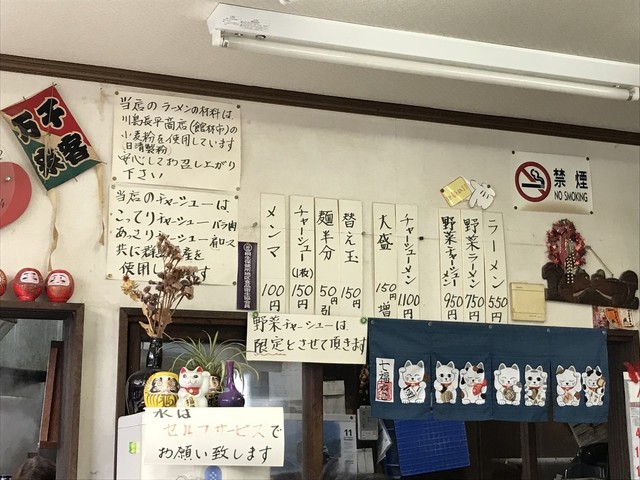 千万来客
当店のラーメンの材料は
川島長平商店(館林市)の
小麦粉を使用しています
(日清製粉)
安心してお召し上がり
下さい
当店のチャーシューは
こってりチャーシュー バラ肉
あっさりチャーシュー 肩ロース
共に群馬産を
使用してます
禁煙
NO SMOKING
ラーメン 550
野菜ラーメン 750
野菜チャーシューメン 950円
チャーシューメン 1100円
大盛 150円増
替え玉 150円
麺半分 50円引
チャーシュー(1枚) 150円
メンマ 100円
野菜チャーシューは
限定とさせて頂きます
七福若猫
水は
セルフサービスで
お願い致します
11